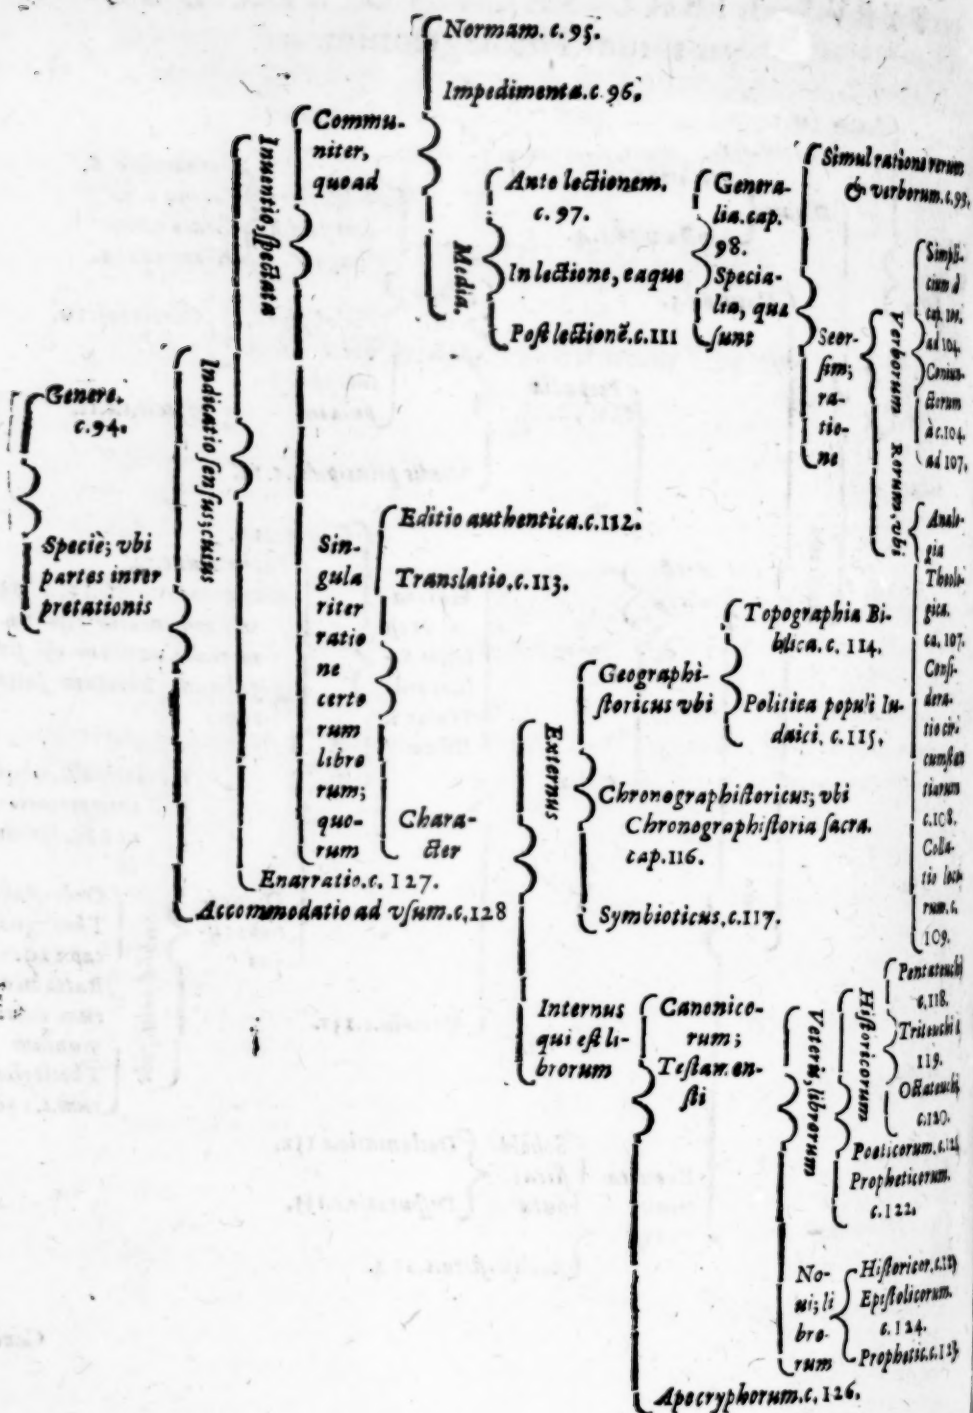 Genere.
c.94.
Speciè; vbi
partes inter
pretationis
Indicatio sensus; cuius
Inuentio, spectata
Commu-
niter,
quoad
Normam. c. 95.
Impedimenta. c 96.
Media.
Ante lectionem.
c. 97.
In lectione, eaque
Post lectionē. c. 111
Genera-
lia. cap.
98.
Specia-
lia, quæ
sunt
Simul ratione rerum
& verborum. c. 99.
Seor-
sim;
ra-
tio-
ne
Verborum
Simpli-
cium à
cap.
ad 104.
Coniun-
ctorum
à c. 104.
ad 107.
Rerum. vbi
Analo-
gia
Theolo-
gica.
ca. 107.
Consi-
dera-
tio cir-
cumstan
tiarum
c. 108.
Colla-
tio loco-
rum. c.
109.
Sin-
gula
riter
ratio
ne
certo
rum
libro
rum;
quo-
rum
Editio authentica. c. 112.
Translatio. c. 113.
Chara-
cter
Externus
Geographi-
storicus vbi
Topographia Bi-
blica. c. 114.
Politica populi Iu-
daici. c. 115.
Chronographistoricus; vbi
Chronographistoria sacra.
cap. 116.
Symbioticus. c. 117.
Internus
qui est li-
brorum
Canonico-
rum;
Testamen-
sti
Veteris, librorum
Historicorum
Pentateuchi
c. 118.
Triteuchi
119.
Octateuchi
c. 120.
Poeticorum. c. 121
Propheticorum.
c. 122.
No-
ui; li
bro-
rum
Historicor. c. 123
Epistolicorum.
c. 124.
Prophetic. c.
Apocryphorum. c. 126.
Enarratio. c. 127.
Accommodatio ad vsum. c. 128